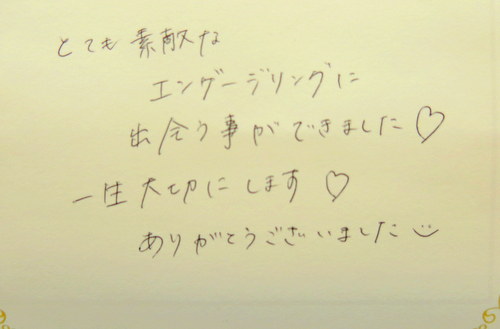 とても素敵な
エンゲージリングに
出会う事ができました♡
一生大切にします♡
ありがとうございました